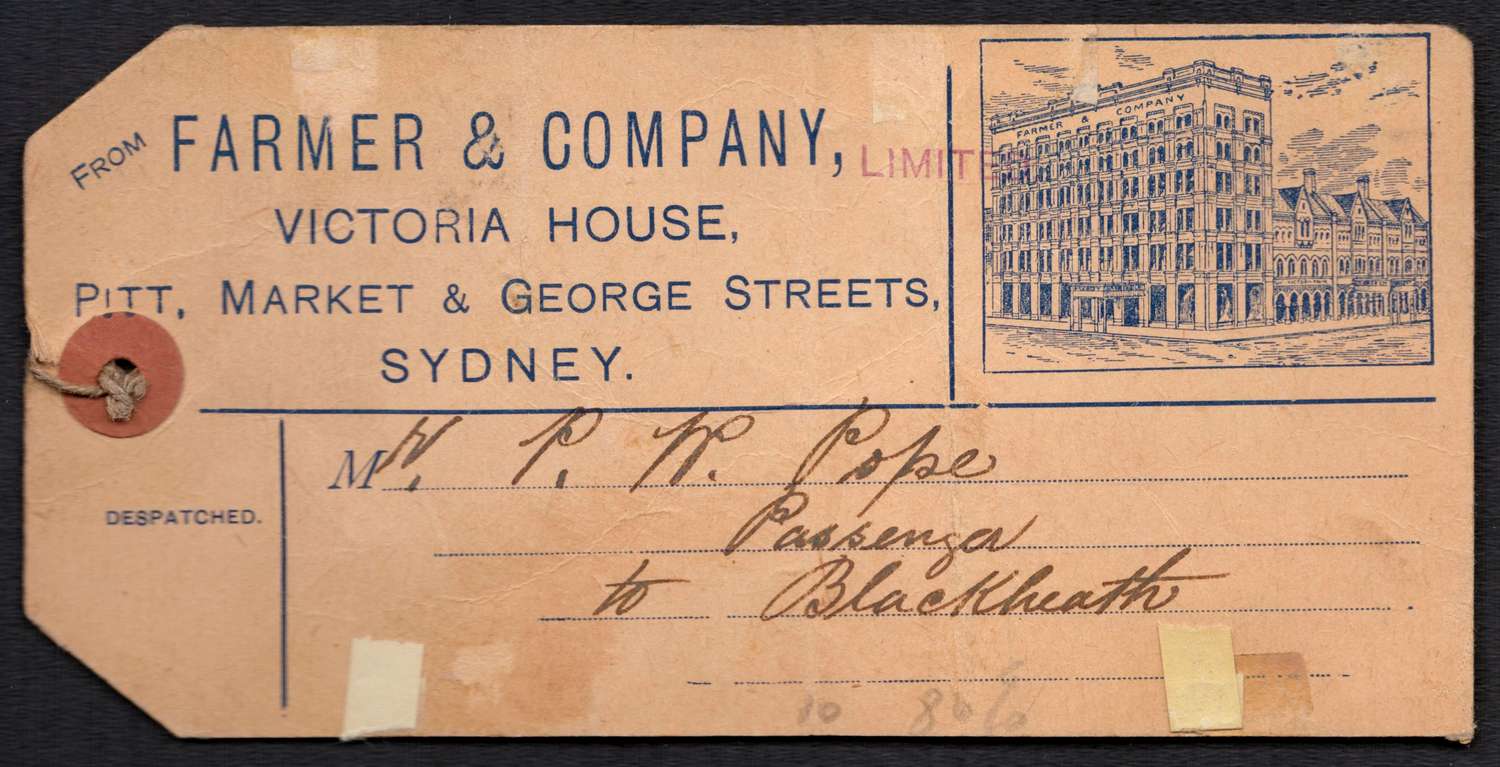 FROM FARMER & COMPANY, LIMITED
VICTORIA HOUSE,
PITT, MARKET & GEORGE STREETS,
SYDNEY.
FARMER & COMPANY
Mr. P. W. Pope
DESPATCHED.
Passenger
to Blackheath
10 806